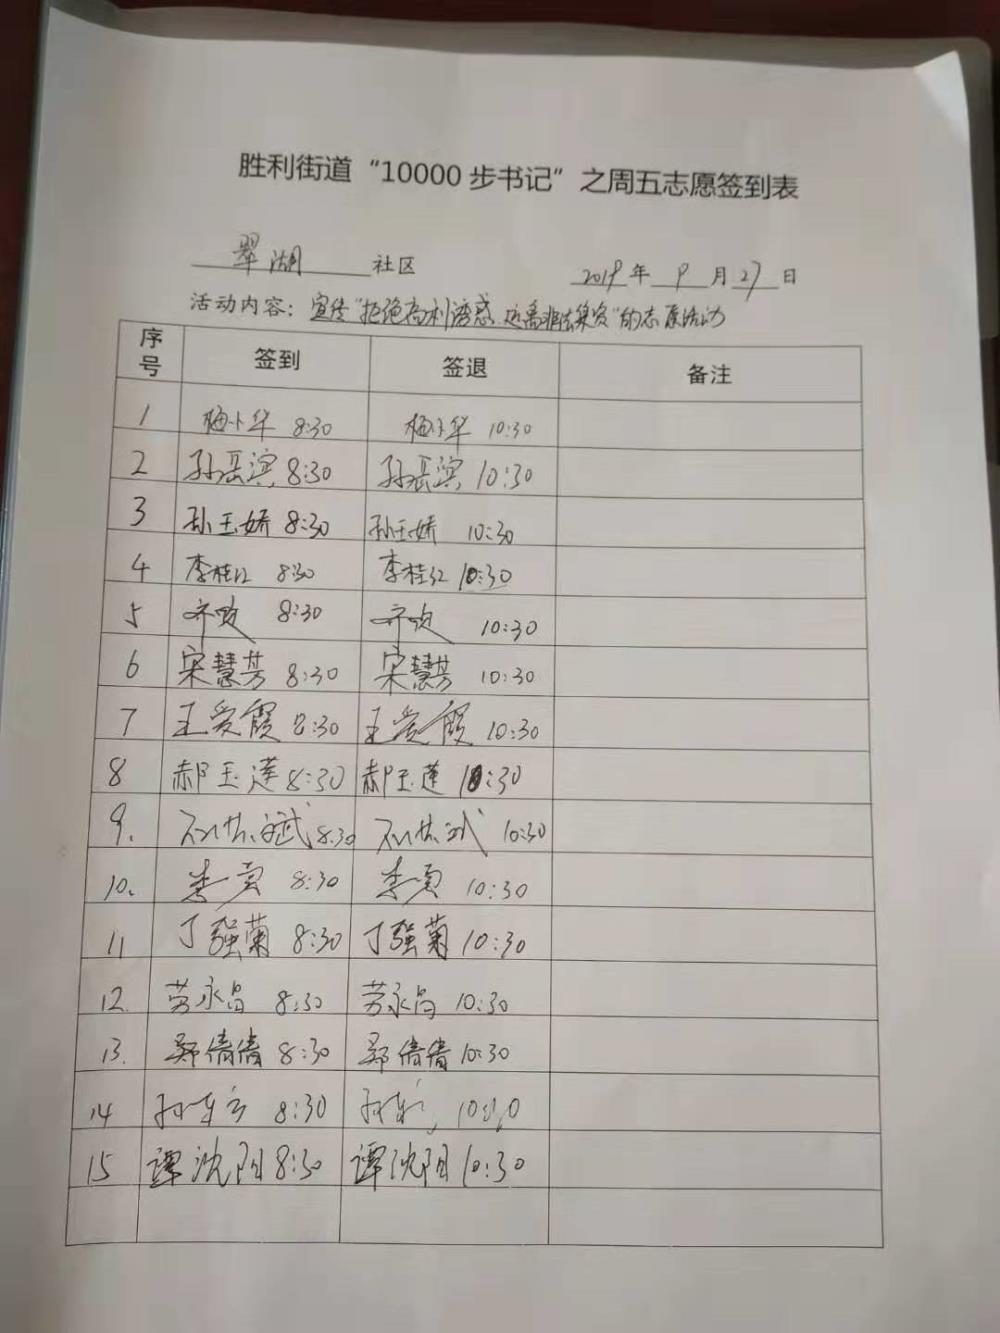 胜利街道“10000步书记”之周五志愿签到表
翠湖 社区 2019年 9 月 27 日
活动内容：宣传“拒绝高利诱惑.远离非法集资”的志愿活动
序号 签到 签退 备注
1 梅小华 8:30 梅小华 10:30
2 孙岳滨 8:30 孙岳滨 10:30
3 孙玉娇 8:30 孙玉娇 10:30
4 李桂红 8:30 李桂红 10:30
5 齐 8:30 齐 10:30
6 宋慧芳 8:30 宋慧芳 10:30
7 王爱霞 8:30 王爱霞 10:30
8 郝玉莲 8:30 郝玉莲 10:30
9. 8:30 10:30
10. 李 8:30 李 10:30
11 丁强菊 8:30 丁强菊 10:30
12. 劳永昌 8:30 劳永昌 10:30
13. 郑倩倩 8:30 郑倩倩 10:30
14 孙 8:30 孙
15 谭沈阳 8:30 谭沈阳 10:30